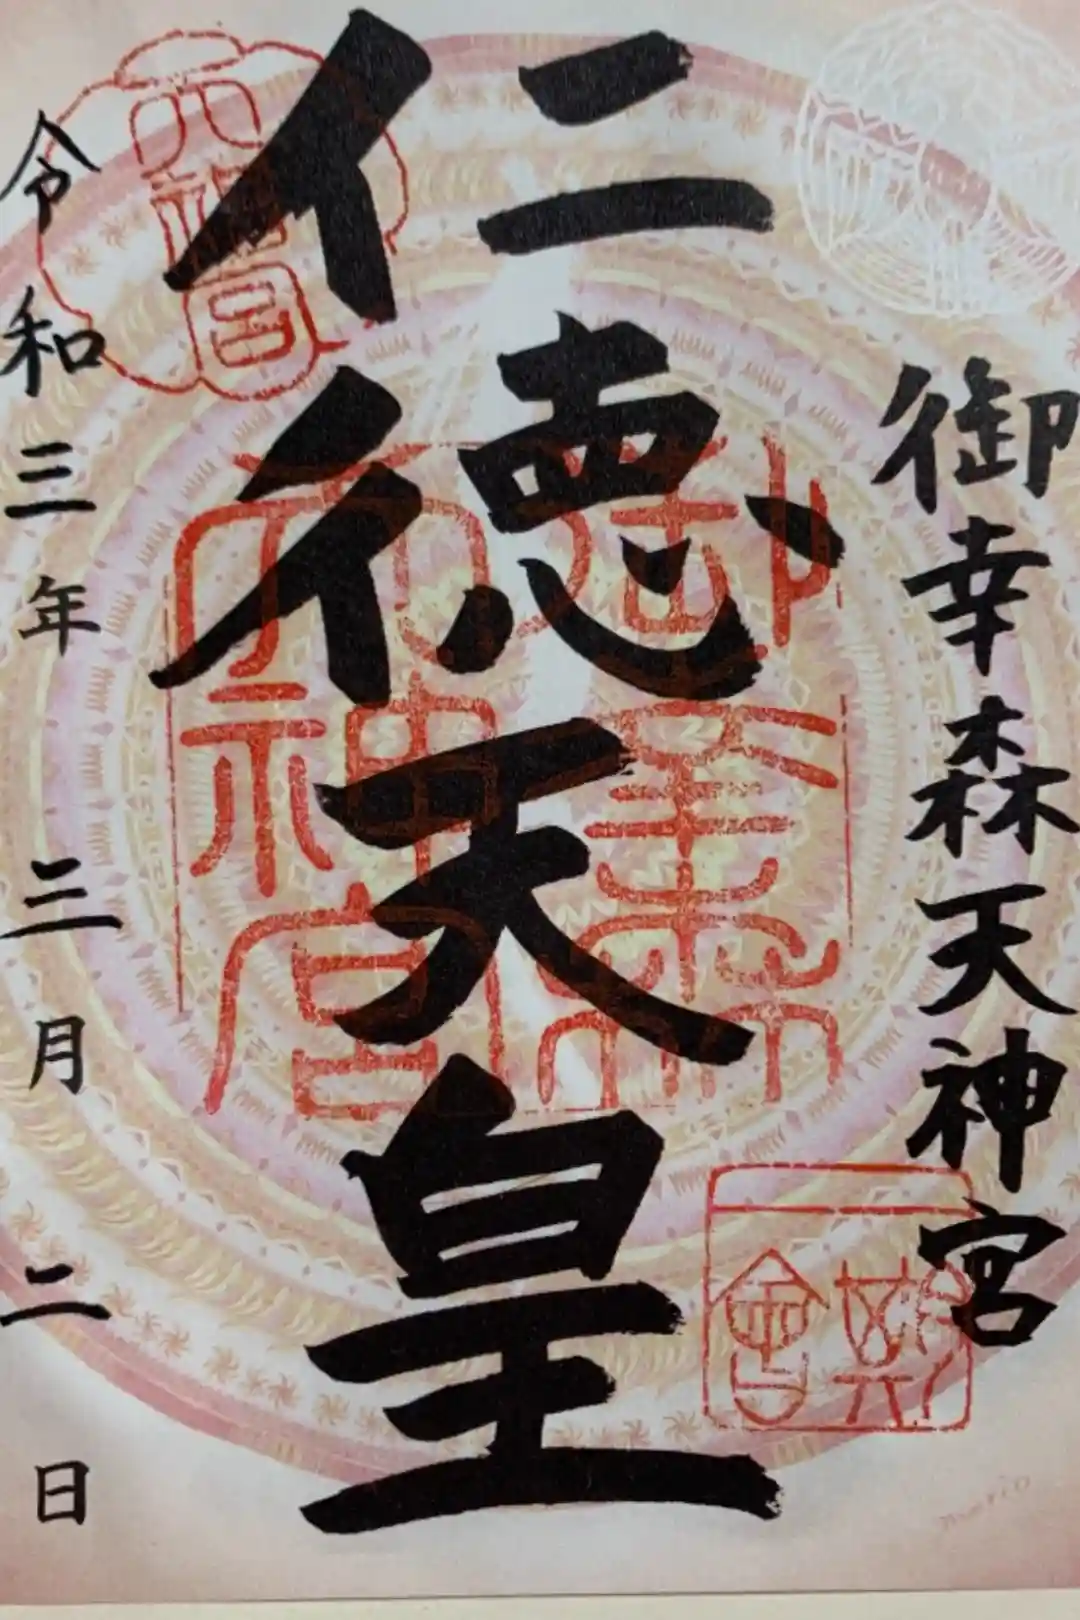 御幸森天神宮
仁徳天皇
令和三年三月二日